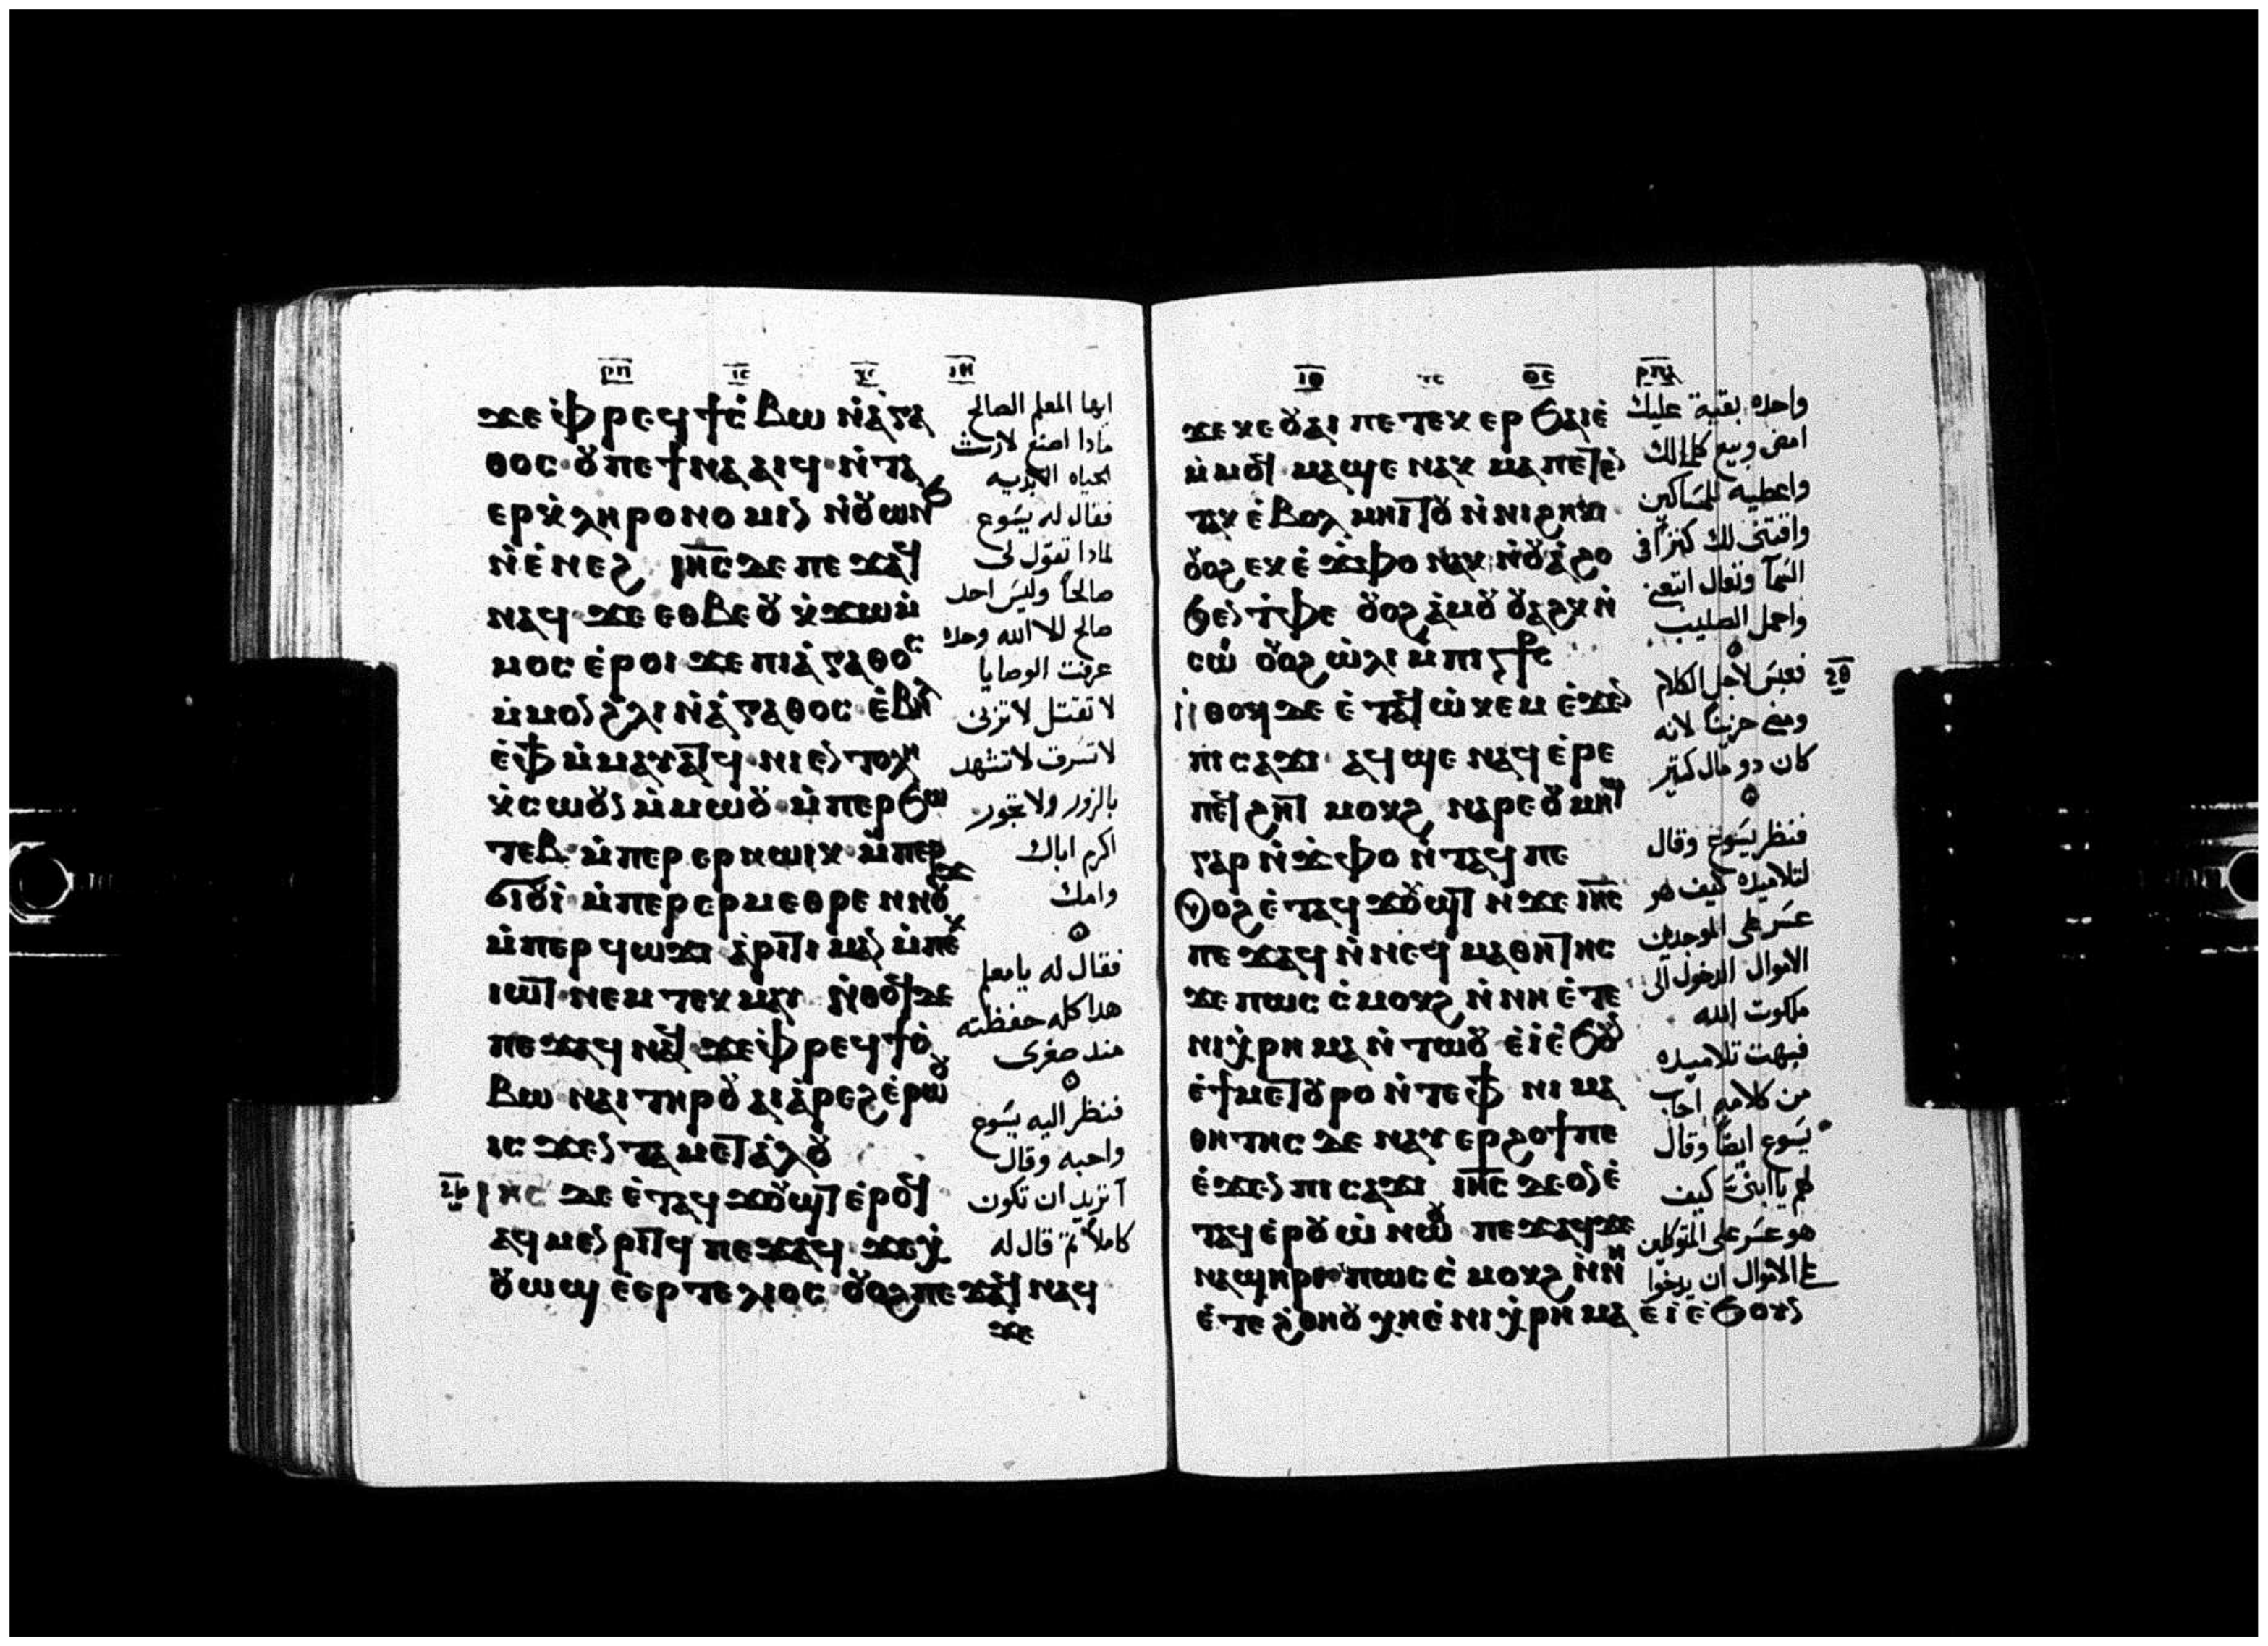 ⲣⲡ ⲓⲥ ⲭⲥ ⲓⲏ
ϫⲉ ⲫⲣⲉϥϯⲥⲃⲱ ⲛⲁⲅⲁ
ⲑⲟⲥ ⲟⲩ ⲡⲉϯⲛⲁⲁⲓϥ ⲛⲧⲁ
ⲉⲣⲕⲗⲏⲣⲟⲛⲟⲙⲓⲛ ⲛⲟⲩⲱⲛϧ
ⲛⲉⲛⲉϩ ⲓⲏⲥ ⲇⲉ ⲡⲉϫⲁϥ
ⲛⲁϥ ϫⲉ ⲉⲑⲃⲉⲟⲩ ⲕϫⲱⲙ
ⲙⲟⲥ ⲉⲣⲟⲓ ϫⲉ ⲡⲓⲁⲅⲁⲑⲟⲥ
ⲙⲙⲟⲛ ϩⲗⲓ ⲛⲁⲅⲁⲑⲟⲥ ⲉⲃⲏⲗ
ⲉⲫϯ ⲙⲙⲁⲩⲁⲧϥ ⲛⲓⲉⲛⲧⲟⲗⲏ
ⲕⲥⲱⲟⲩⲛ ⲙⲙⲱⲟⲩ ⲙⲡⲉⲣϧⲱ
ⲧⲉⲃ ⲙⲡⲉⲣⲉⲣⲛⲱⲓⲕ ⲙⲡⲉⲣ
ϭⲓⲟⲩⲓ ⲙⲡⲉⲣⲉⲣⲙⲉⲑⲣⲉ ⲛⲛⲟⲩϫ
ⲙⲡⲉⲣϥⲱϫⲓ ⲁⲣⲓⲧⲓⲙⲁⲛ ⲙⲡⲉⲕ
ⲓⲱⲧ ⲛⲉⲙ ⲧⲉⲕⲙⲁⲩ ⲛⲑⲟϥ ⲇⲉ
ⲡⲉϫⲁϥ ⲛⲁϥ ϫⲉ ⲫⲣⲉϥϯⲥ
ⲃⲱ ⲛⲁⲓ ⲧⲏⲣⲟⲩ ⲁⲓⲁⲣⲉϩ ⲉⲣⲱⲟⲩ
ⲓⲥϫⲉⲛ ⲧⲁⲙⲉⲧⲁⲗⲟⲩ
ⲓⲏⲥ ⲇⲉ ⲉⲧⲁϥϫⲟⲩϣⲧ ⲉⲣⲟϥ
ⲁϥⲙⲉⲛⲣⲓⲧϥ ⲡⲉϫⲁϥ ϫⲉ ⲭ
ⲟⲩⲱϣ ⲉⲉⲣⲧⲉⲗⲓⲟⲥ ⲟⲩⲟϩ ⲡⲉϫⲁϥ ⲛⲁϥ
ϫⲉ
ايها المعلم الصالح
مادا اصنع لارث
الحياه الابديه
فقال له يسوع
لمادا تقول لى
صالحاً وليس احد
صالح الا الله وحده
عرفت الوصايا
لا تقتل لا تزنى
لا تسرق لا تشهد
بالزور ولا تجور
اكرم اباك
وامك
فقال له يامعلم
هدا كله حفظته
مند صغرى
فنظر اليه يسوع
واحبه وقال
اتريد ان تكون
كاملاً ثم قال له
ⲓⲑ ⲩⲥ ⲑⲥ ⲣⲡⲁ
ϫⲉ ⲕⲉⲟⲩⲁⲓ ⲡⲉⲧⲉⲕⲉⲣϧⲁⲓⲉ
ⲙⲙⲟϥ ⲙⲁϣⲉ ⲛⲁⲕ ⲙⲁ ⲡⲉⲧⲉⲛ
ⲧⲁⲕ ⲉⲃⲟⲗ ⲙⲏⲓⲧⲟⲩ ⲛⲛⲓϩⲏⲕⲓ
ⲟⲩⲟϩ ⲉⲕⲉϫⲫⲟ ⲛⲁⲕ ⲛⲟⲩⲁϩⲟ
ϧⲉⲛ ⲧⲫⲉ ⲟⲩⲟϩ ⲁⲙⲟⲩ ⲟⲩⲁϩⲕ ⲛ
ⲥⲱⲓ ⲟⲩⲟϩ ⲱⲗⲓ ⲙⲡⲓⲥϯⲥ
ⲛⲑⲟϥ ⲇⲉ ⲉⲧⲁϥⲱⲕⲉⲙ ⲉϫⲉⲛ
ⲡⲓⲥⲁϫⲓ ⲁϥϣⲉ ⲛⲁϥ ⲉⲣⲉ
ⲡⲉϥϩⲏⲧ ⲙⲟⲕϩ ⲛⲁⲣⲉ ⲟⲩⲙⲏϣ
ⲅⲁⲣ ⲛϫⲫⲟ ⲛⲧⲁϥ ⲡⲉ
ⲟⲩⲟϩ ⲉⲧⲁϥϫⲟⲩϣⲧ ⲛϫⲉ ⲓⲏⲥ
ⲡⲉϫⲁϥ ⲛⲛⲉϥⲙⲁⲑⲏⲧⲏⲥ
ϫⲉ ⲡⲱⲥ ⲥⲙⲟⲕϩ ⲛⲛⲏ ⲉⲧⲉ
ⲛⲓⲭⲣⲏⲙⲁ ⲛⲧⲱⲟⲩ ⲉⲓ ⲉϧⲟⲩⲛ
ⲉϯⲙⲉⲧⲟⲩⲣⲟ ⲛⲧⲉ ⲫϯ ⲛⲓⲙⲁ
ⲑⲏⲧⲏⲥ ⲇⲉ ⲛⲁⲩⲉⲣϩⲟϯ ⲡⲉ
ⲉϫⲉⲛ ⲡⲓⲥⲁϫⲓ ⲓⲏⲥ ⲇⲉ ⲟⲛ ⲉ
ⲧⲁϥⲉⲣⲟⲩⲱ ⲛⲱⲟⲩ ⲡⲉϫⲁϥ ϫⲉ
ⲛⲁϣⲏⲣⲓ ⲡⲱⲥ ⲥⲙⲟⲕϩ ⲛⲛⲏ
ⲉⲧⲉ ϩⲑⲏⲟⲩ ⲭⲏ ⲉⲛⲓⲭⲣⲏⲙⲁ ⲉⲓ ⲉϧⲟⲩⲛ
واحده بقية عليك
امض وبيع كلما لك
واعطيه للمساكين
واقتنى لك كنزاً فى
السمآ وتعال اتبعنى
واحمل الصليب
فعبس لاجل الكلام
ومضى حزيناً لانه
كان دو مال كتير
فنظر يسوع وقال
لتلاميده كيف هو
عسر على الموجدين
الاموال الدخول الى
ملكوت الله
فبهت تلاميده
من كلامه اجاب
يسوع ايضاً وقال
لهم يا ابنى كيف
هو عسر على المتوكلين
ع الاموال ان يدخلوا